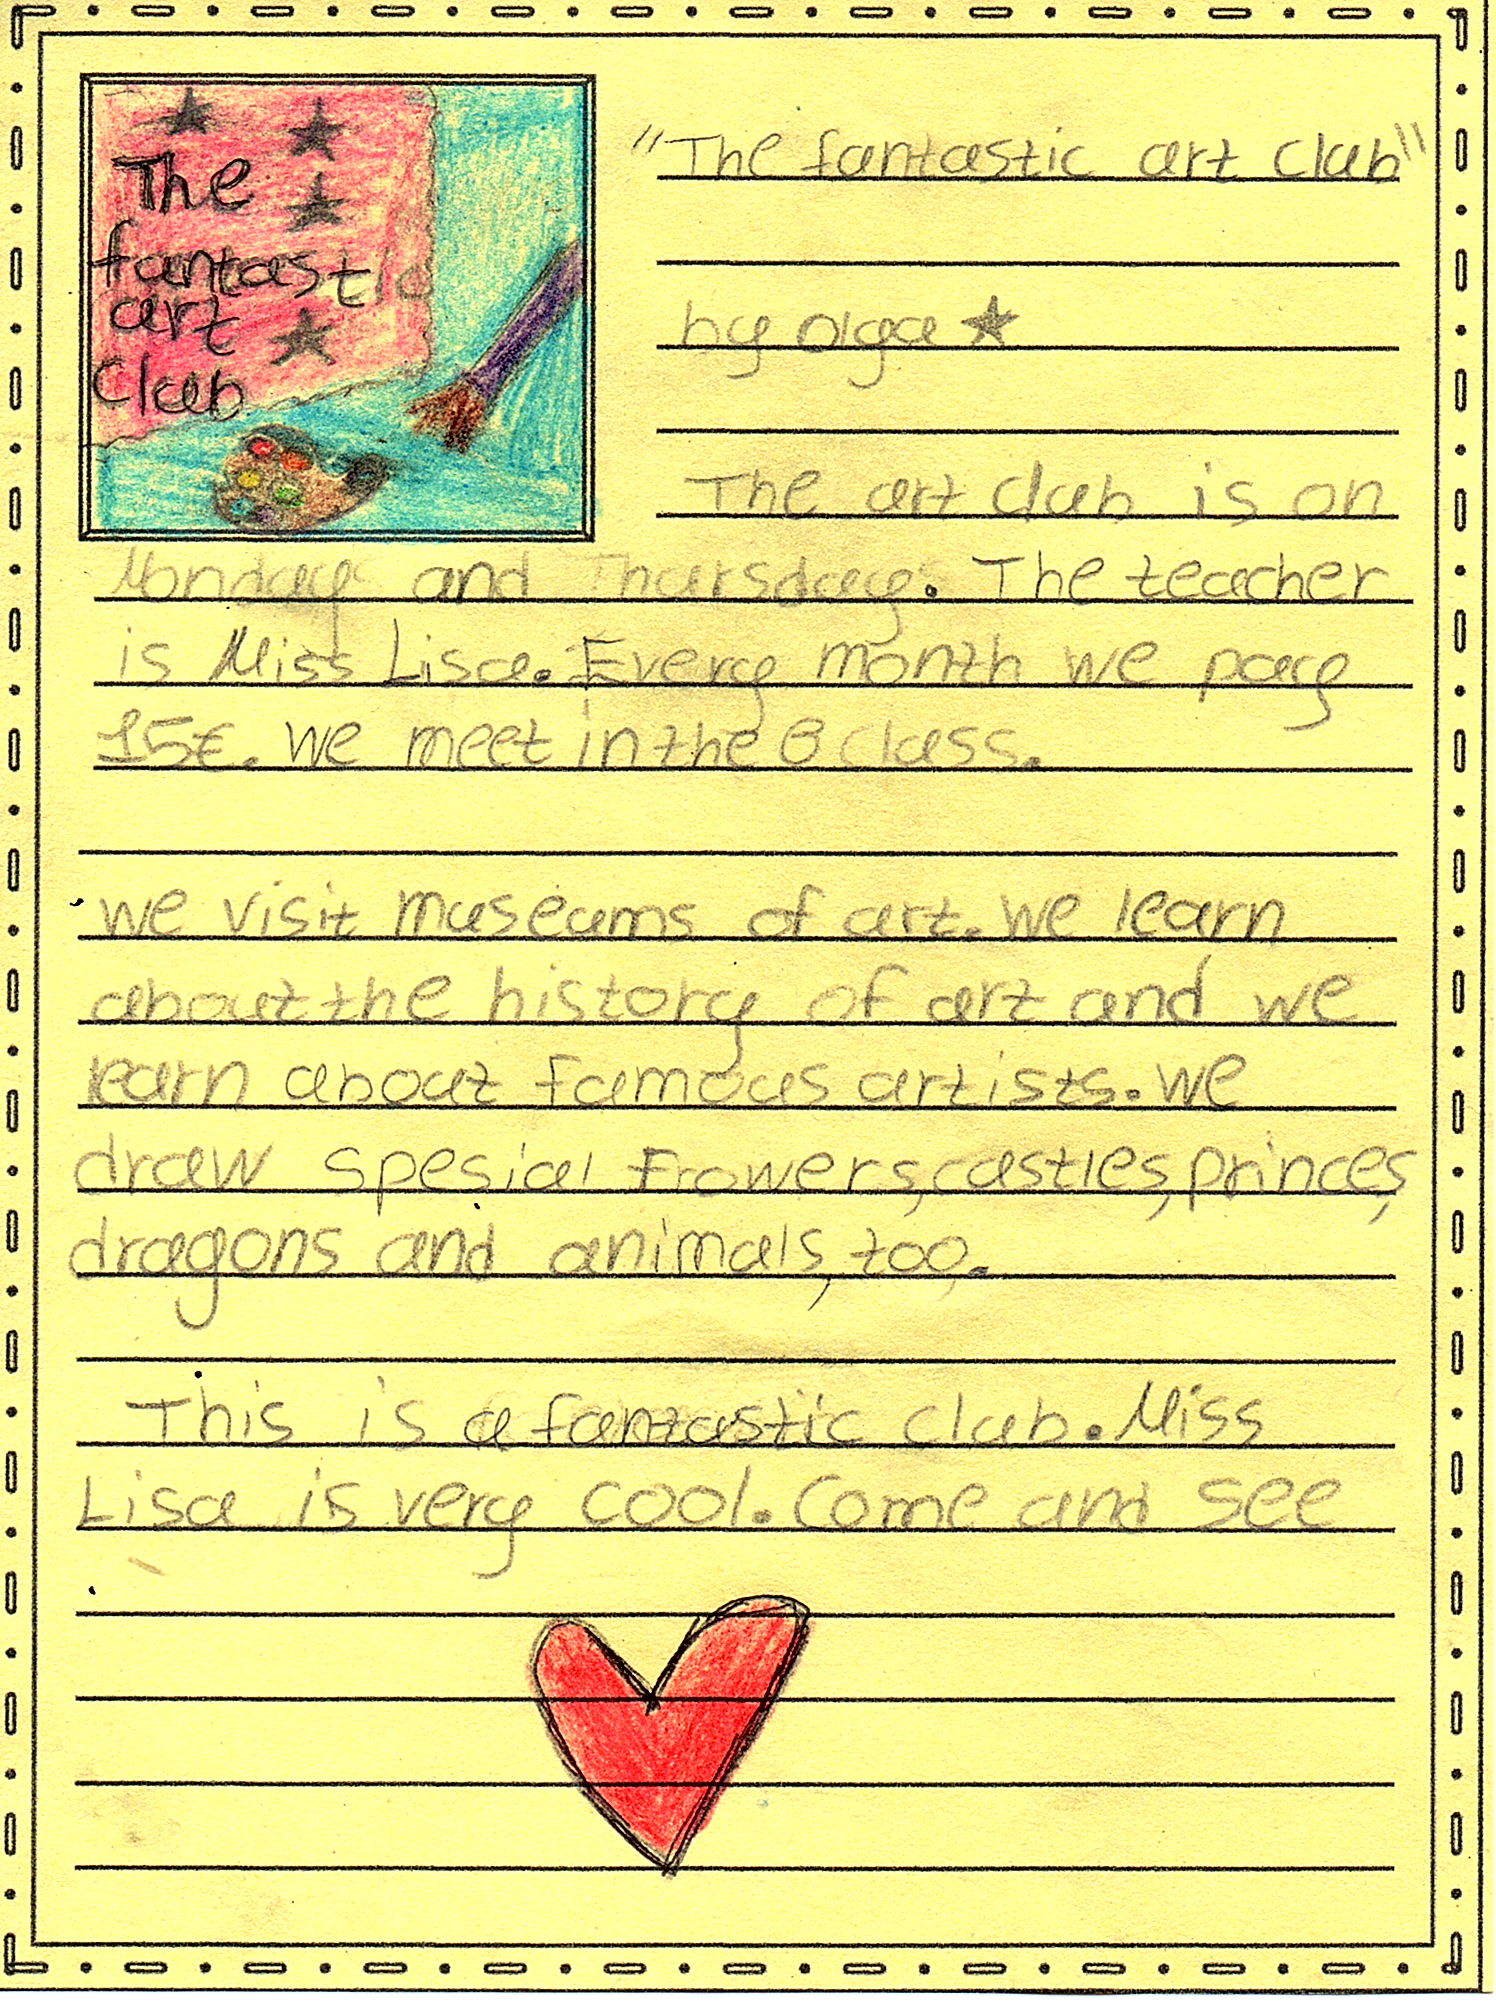 The
fantastic
art
Club
"The fantastic art club"
by olga
The art club is on
Monday and Thursday. The teacher
is Miss Lisa. Every month we pay
15€. We meet in the B class.
We visit museums of art. We learn
about the history of art and we
learn about famous artists. We
draw spesial frowers, castles, princes,
dragons and animals, too.
This is a fantastic club. Miss
Lisa is very cool. Come and see